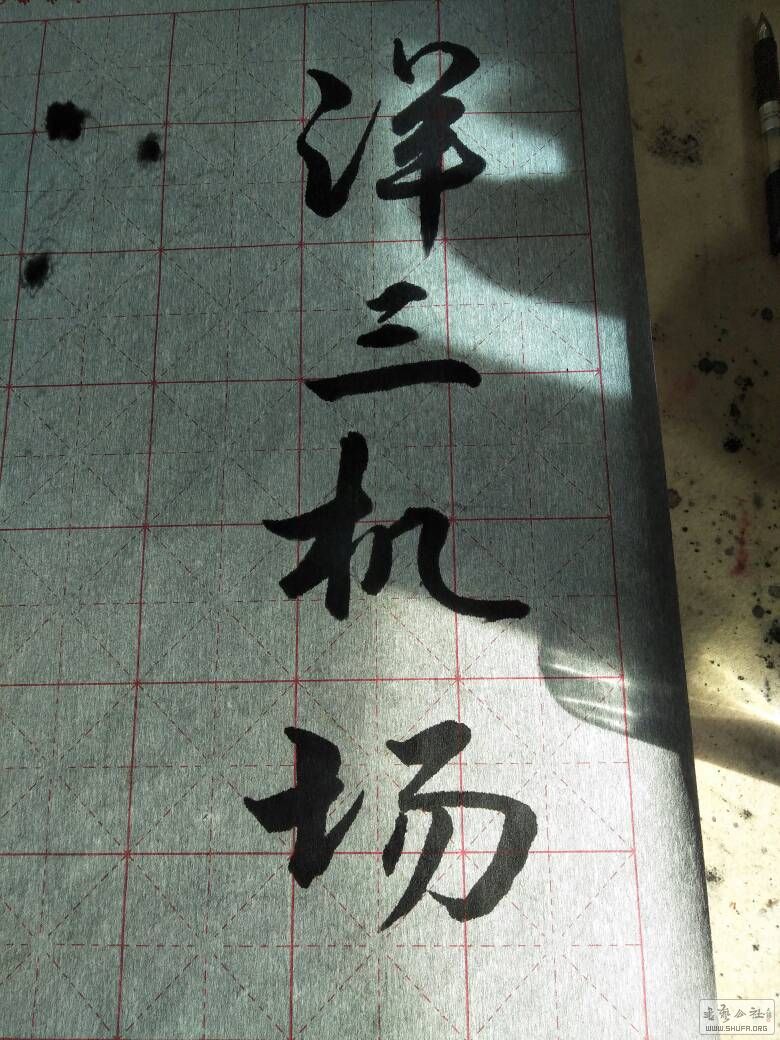 洋三机场
书艺公社
WWW.SHUFA.ORG